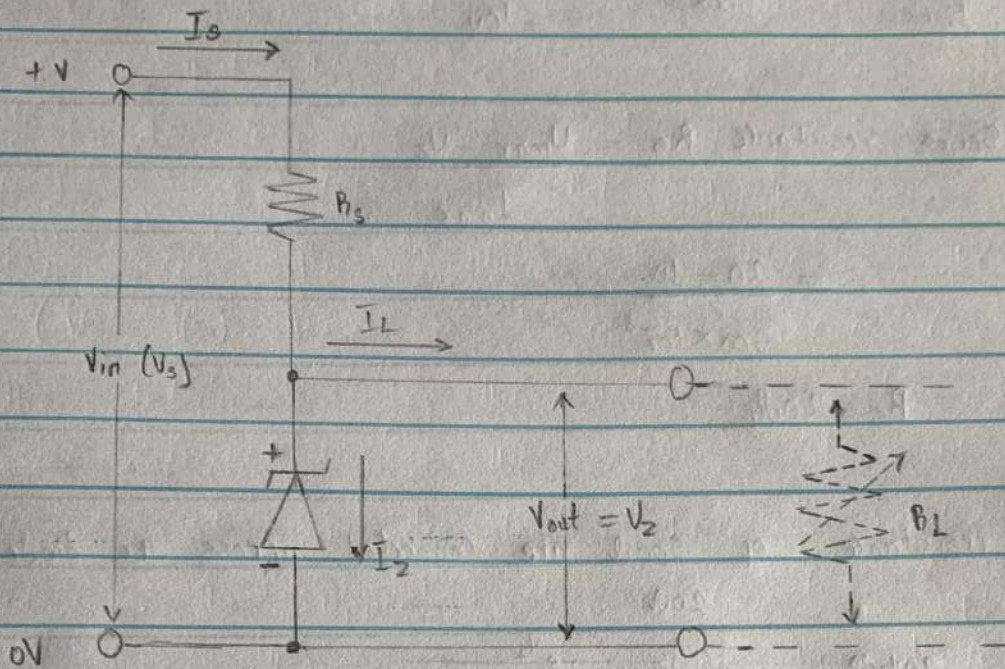 Is
+V
Rs
IL
Vin (Vs)
+
Vout = Vz
RL
-
Iz
0V